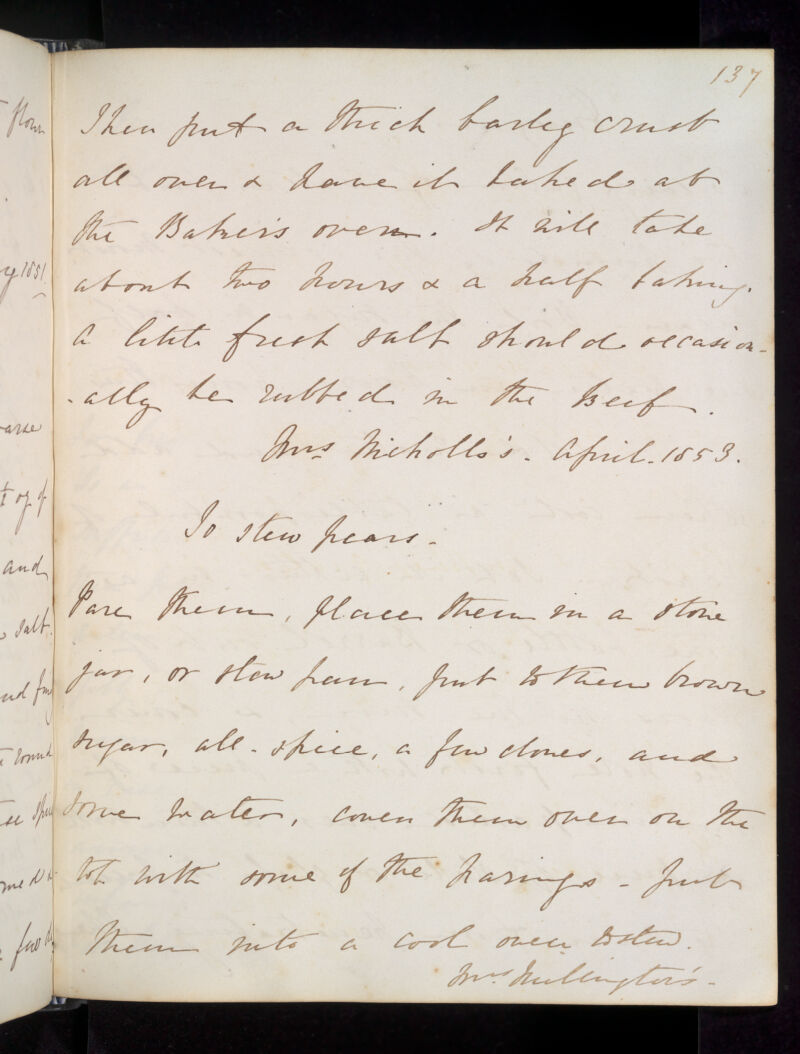 137
Then put a thick barley crust
all over & have it baked at
the Baker's oven. It will take
about two hours & a half baking.
A little fresh salt should occasion-
-ally be rubbed in the Beef.
Mrs Nicholls's. April. 1853.
To stew pears.
Pare them, place them in a stone
jar, or stew pan, put to them brown
sugar, all-spice, a few cloves, and
some water, cover them over on the
top with some of the parings - put
them into a cool oven to stew.
Mrs Millington's.
flour
1851.
oz of
and
salt.